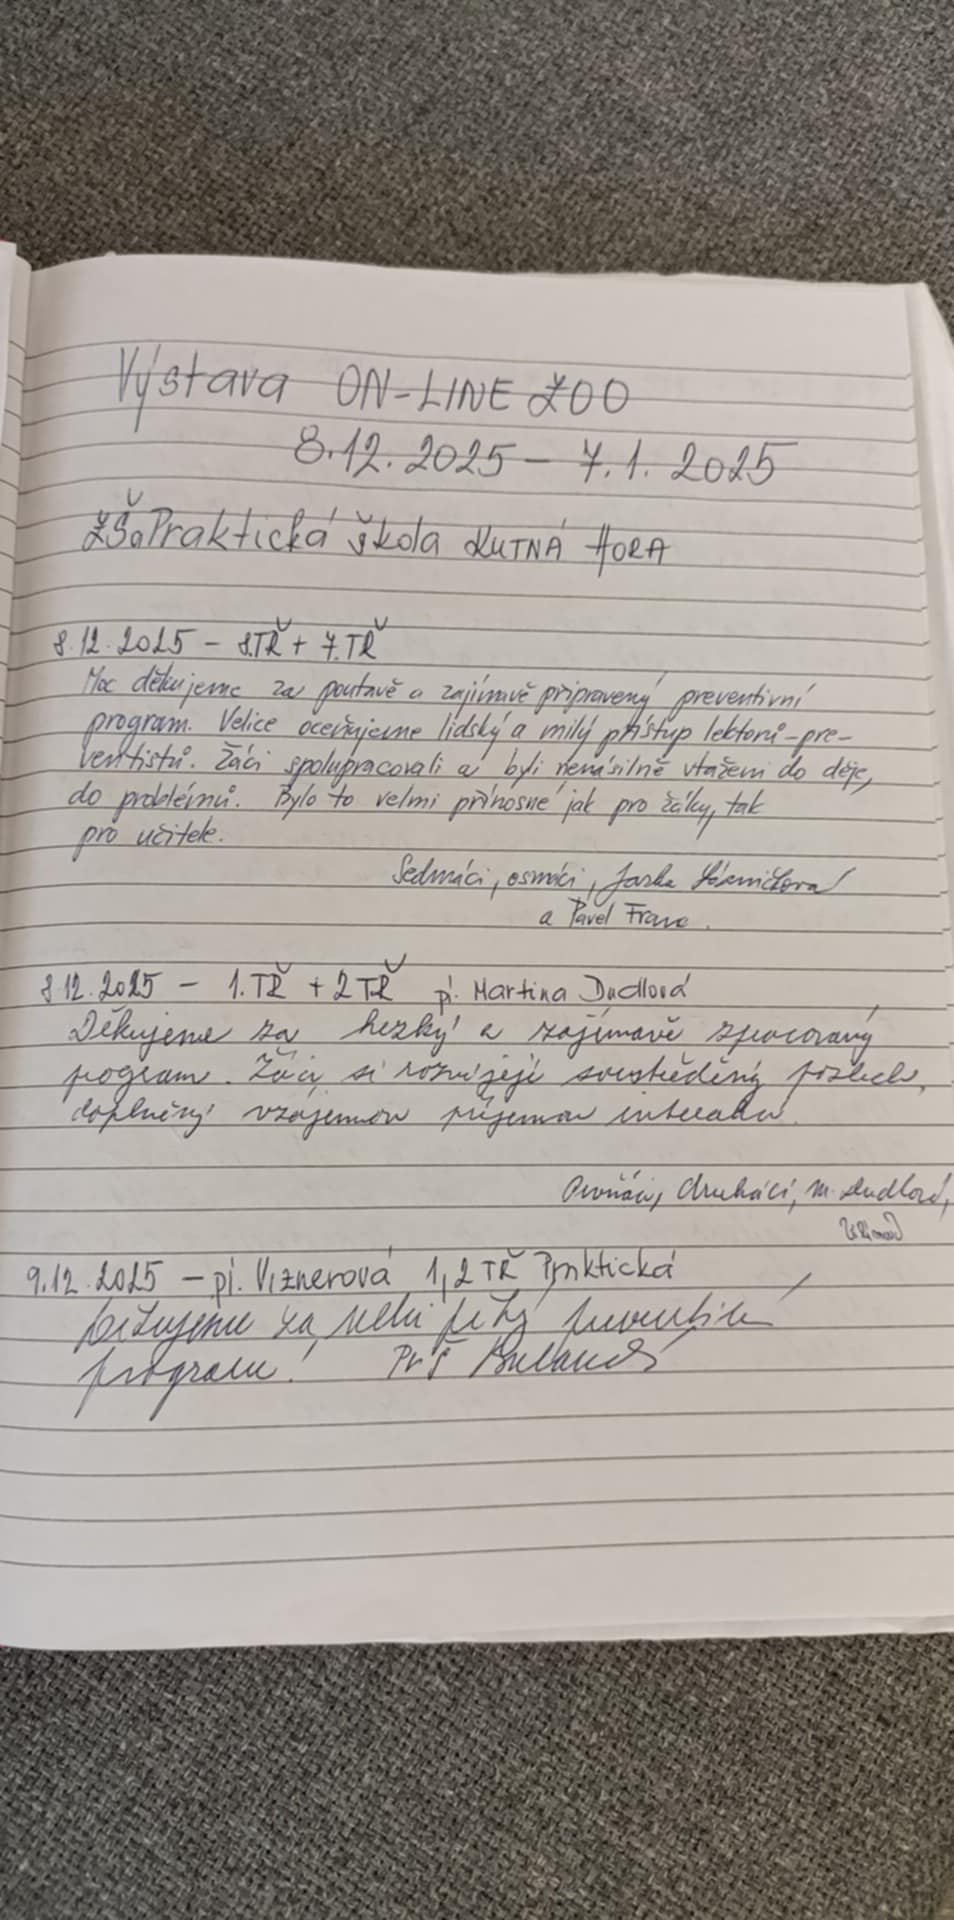 Výstava ON-LINE ZOO
8.12.2025 – 7.1.2025
ZŠ a Praktická škola KUTNÁ HORA
8.12.2025 – 8.TŘ + 7.TŘ
Moc děkujeme za poutavě a zajímavě připravený preventivní
program. Velice oceňujeme lidský a milý přístup lektorů-pre-
ventistů. Žáci spolupracovali a byli nenásilně vtaženi do děje,
do problémů. Bylo to velmi přínosné jak pro žáky, tak
pro učitele.
Sedmáci, osmáci,
a Pavel Franc.
8.12.2025 – 1.TŘ + 2TŘ pí. Martina Dudlová
Děkujeme za hezký a zajímavě zpracovaný
program. Žáci si rozvíjejí soustředěný poslech,
doplněný vzájemnou příjemnou interakcí.
Prvňáci, druháci, M. Dudlová,
9.12.2025 – pí. Viznerová 1,2 TŘ Praktická
Děkujeme za velmi pěkný preventivní
program! PrŠ